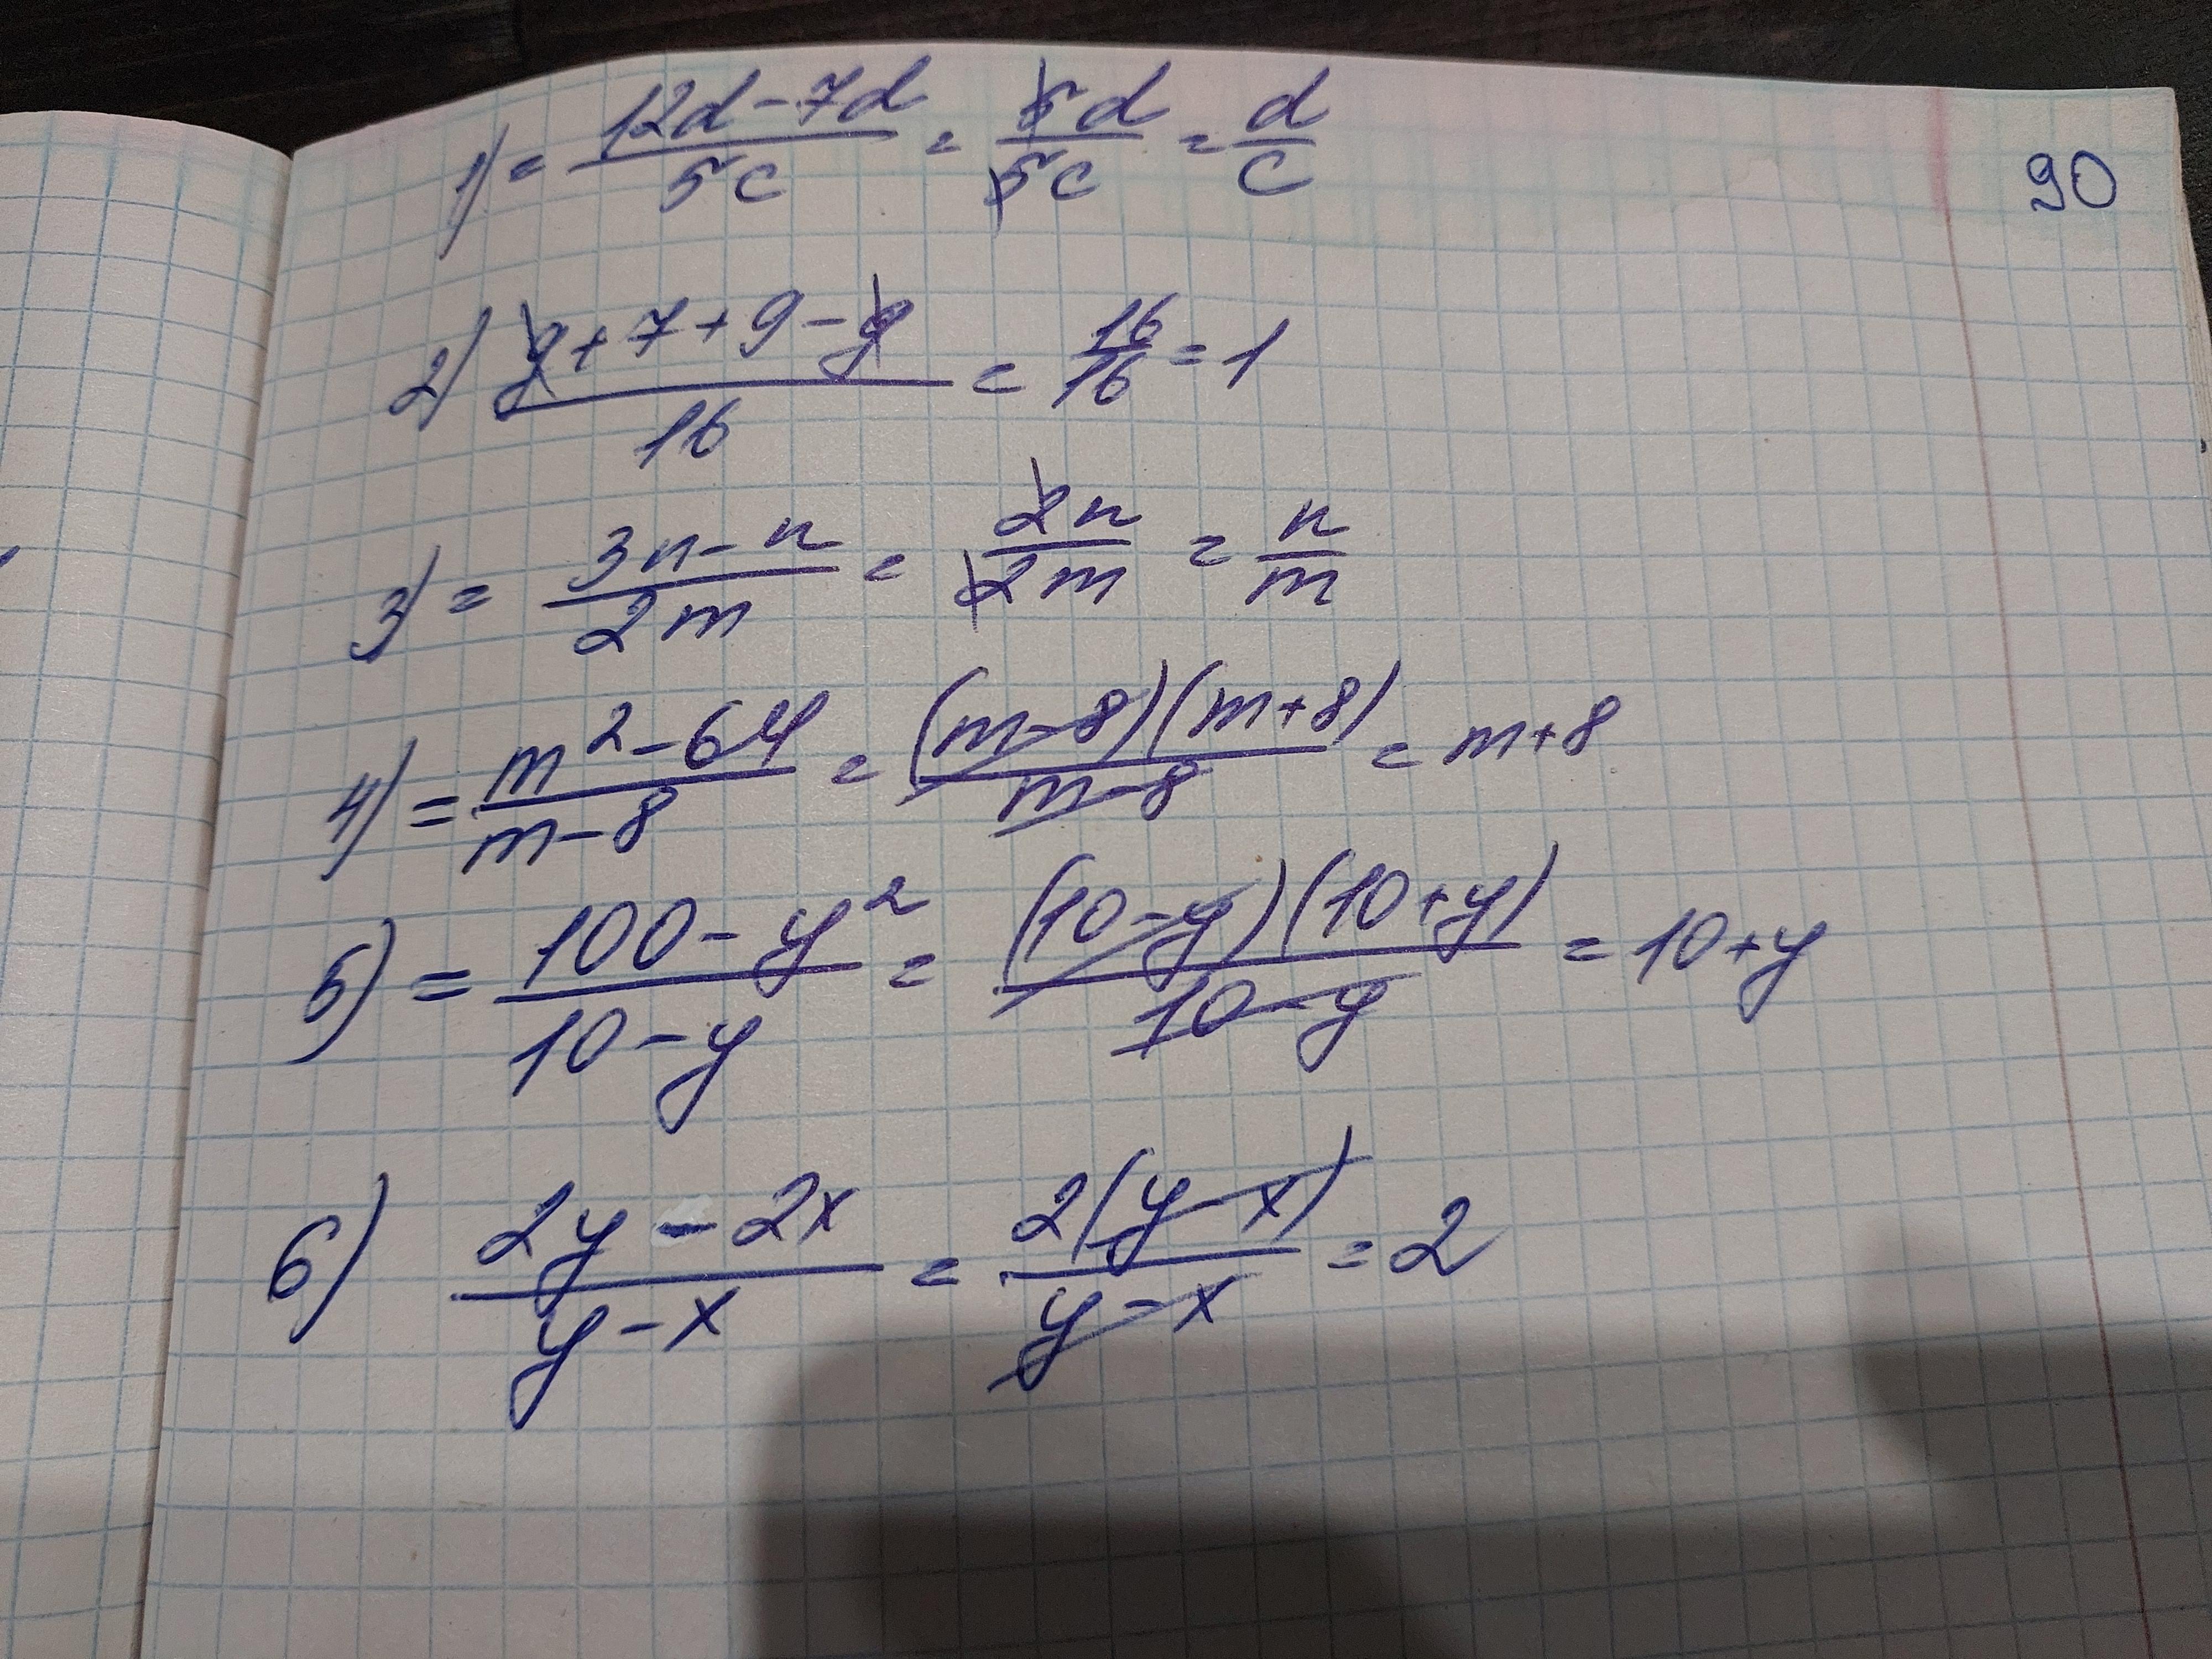 1) = \frac{12d-7d}{5c} = \frac{5d}{5c} = \frac{d}{c}
90
2) \frac{y+7+9-y}{16} = \frac{16}{16} = 1
3) = \frac{3n-n}{2m} = \frac{2n}{2m} = \frac{n}{m}
4) = \frac{m^2-64}{m-8} = \frac{(m-8)(m+8)}{m-8} = m+8
5) = \frac{100-y^2}{10-y} = \frac{(10-y)(10+y)}{10-y} = 10+y
6) \frac{2y-2x}{y-x} = \frac{2(y-x)}{y-x} = 2